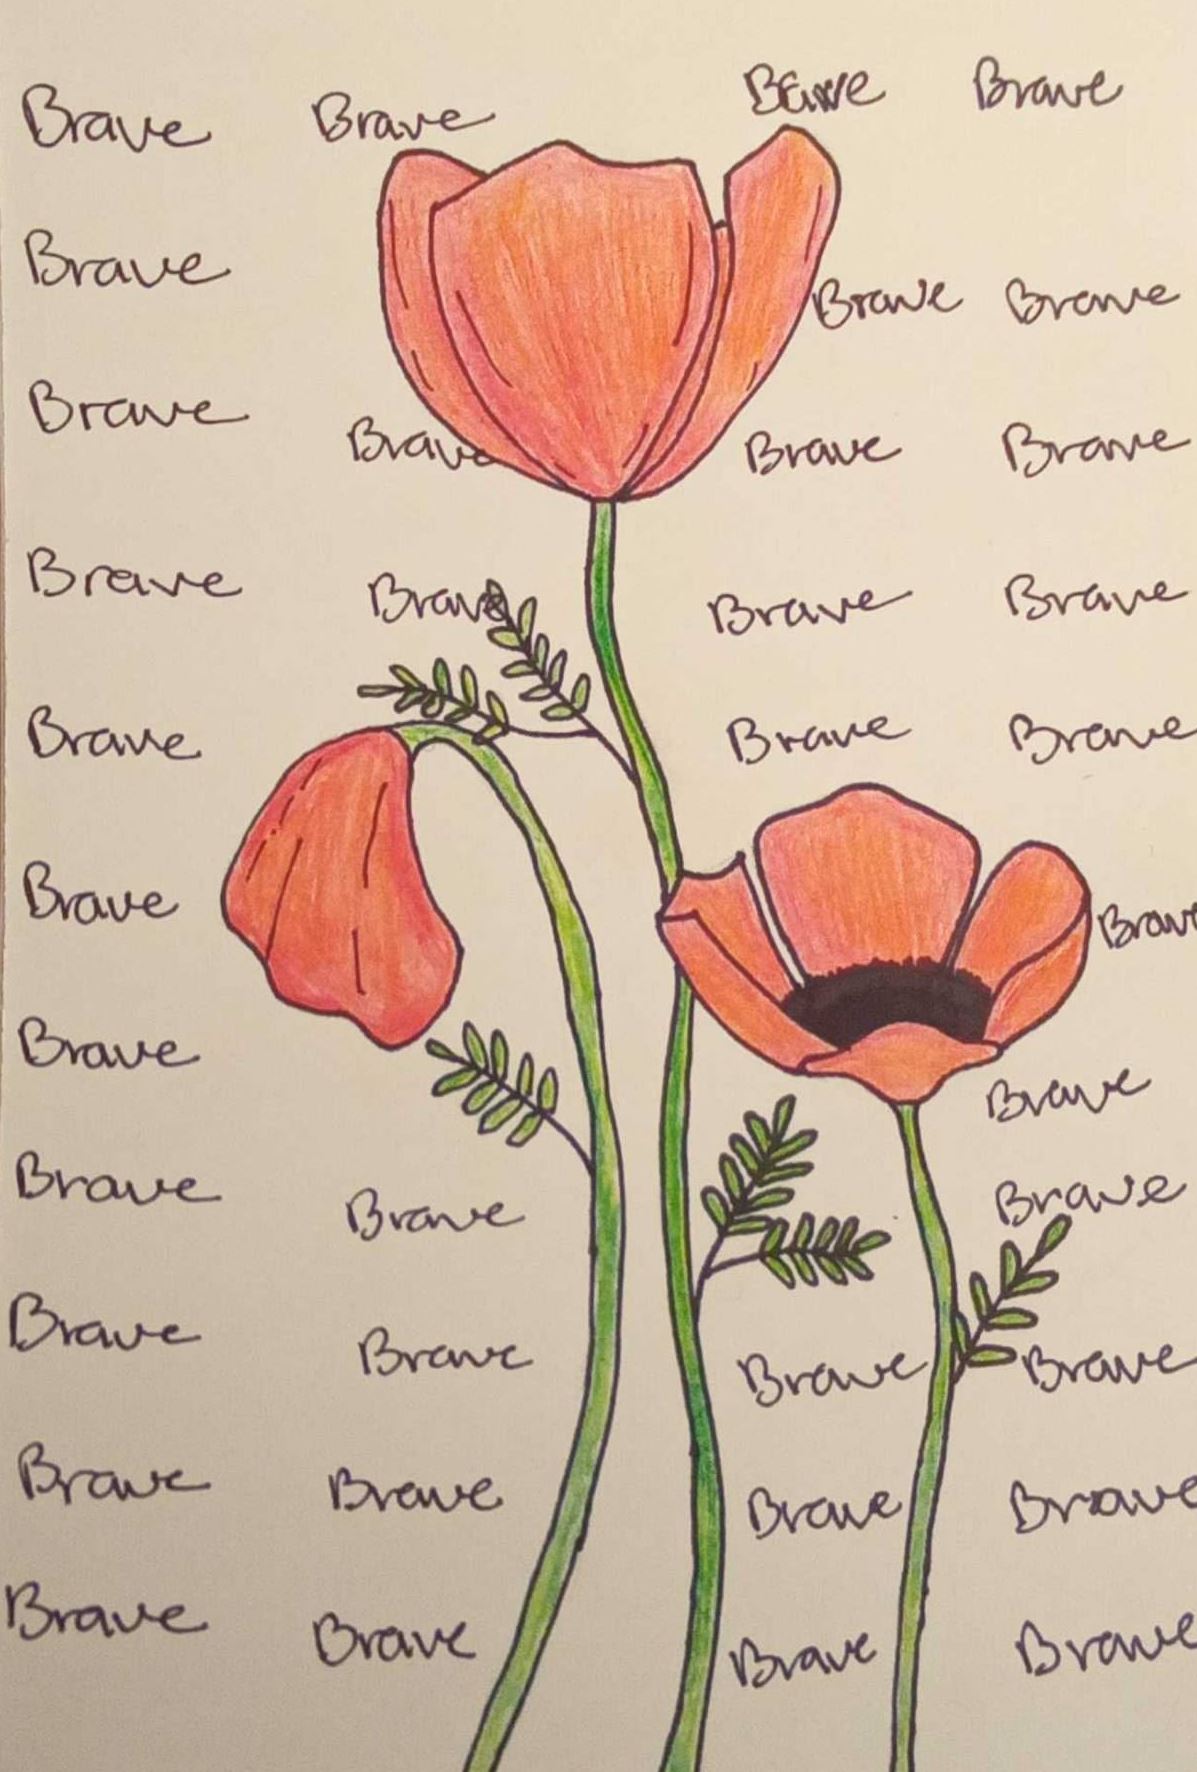 Brave Brave Brave Brave
Brave Brave Brave
Brave Brave Brave Brave
Brave Brave Brave Brave
Brave Brave Brave
Brave Brave
Brave Brave
Brave Brave Brave
Brave Brave Brave Brave
Brave Brave Brave Brave
Brave Brave Brave Brave